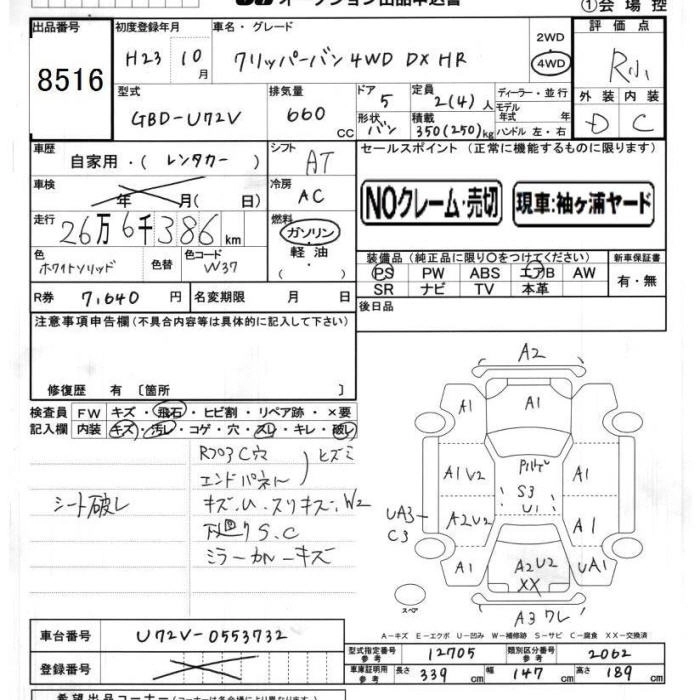 ①会場控
出品番号
8516
初度登録年月
H23 10月
車名・グレード
クリッパーバン 4WD DX HR
2WD
4WD
評価点
R小
外装 内装
D C
型式
GBD-U72V
排気量
660 cc
ドア
5
形状
バン
定員
2(4)人
積載
350(250)kg
ディーラー・並行
モデル年式 年
ハンドル 左・右
車歴
自家用・(レンタカー)
シフト
AT
セールスポイント (正常に機能するものに限ります)
車検
年 月( 日)
冷房
AC
NOクレーム・売切
現車:袖ヶ浦ヤード
走行
26万6千386km
燃料
ガソリン
軽油
( )
色
ホワイトソリッド
色替
色コード
W37
装備品(純正品に限り〇をつけてください)
PS PW ABS エアB AW
SR ナビ TV 本革
新車保証書
有・無
R券 7,640 円
名変期限 月 日
後日品
注意事項申告欄(不具合内容等は具体的に記入して下さい)
修復歴 有 〔箇所 〕
検査員記入欄
FW キズ・飛石・ヒビ割・リペア跡・×要
内装 キズ・汚レ・コゲ・穴・スレ・キレ・破レ
シート破レ
Rフロアウ
エンドパネル
ヒズミ
キズ、U、スリキズ、W2
下廻りS、C
ミラーカバーキズ
A2
A1
A1
A1
A1 V2
S3
U1
A1
UA3
C3
A2U2
A1
A1
A2U2
XX
UA1
スペア
A3ワレ
A-キズ E-エクボ U-凹み W-補修跡 S-サビ C-腐食 XX-交換済
車台番号
U72V-0553732
登録番号
型式指定番号
参考
12705
類別区分番号
参考
2062
車庫証明用
参考
長さ 339 cm 幅 147 cm 高さ 189 cm